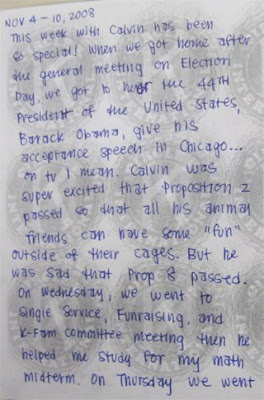 NOV 4-10, 2008
This week with Calvin has been
so special! When we got home after
the general meeting on Election
Day, we got to hear the 44TH
President of the United States,
Barack Obama, give his
acceptance speech in Chicago...
on tv I mean. Calvin was
super excited that Proposition 2
passed so that all his animal
friends can have some "fun"
outside of their cages. But he
was sad that Prop 8 passed.
On Wednesday, we went to
Single Service, Funraising, and
K-Fam committee meeting then he
helped me study for my math
midterm. On Thursday we went